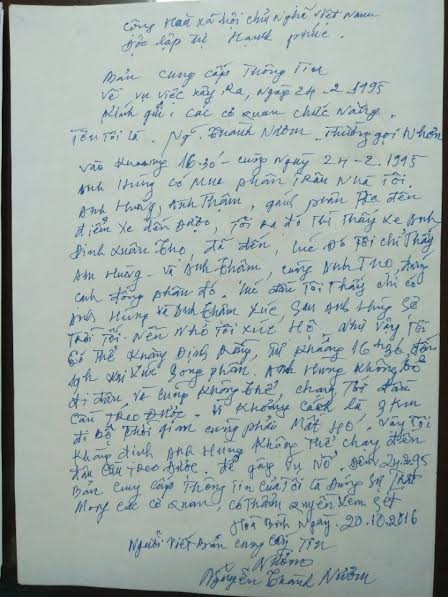 Cộng Hoà xã hội chủ Nghĩa Việt Nam
Độc lập Tự Hạnh phúc.
Bản cung cấp Thông Tin
Về vụ việc xảy Ra, Ngày 24-2-1995
Kính gửi: Các cơ quan chức Năng.
Tên Tôi là. Ng. Thành Nướm. Thường gọi Nhơn
Vào khoảng 16.30 - cùng Ngày 24-2.1995
Anh Hùng có Mua phân Trâu Nhà Tôi.
Anh Hùng, Anh Thậm, gánh phân Ra đến
điểm xe đến được, Tôi Ra đó Thì Thấy xe Anh
Đinh Xuân Thọ, đã đến, lúc đó Tôi chỉ Thấy
Anh Hùng - và Anh Thậm, cùng Anh Thọ, đứng
cạnh đống phân đó. lúc đầu Tôi Thấy chỉ có
Anh Hùng và Anh Thậm Xúc, sau Anh Hùng Sợ
Trời Tối. Nên Nhờ Tôi xúc Hộ. Như vậy Tôi
Có Thể Khẳng Định Rằng, Từ khoảng 16h30 đến
xúc song phân. Anh Hùng Không bỏ
đi đâu và cũng Không Thể, chạy Tới đầu
Cầu Treo Được. Vì Khoảng cách là 9 Km
đi Bộ Thời gian cũng phải Mất. Vậy Tôi
Khẳng định Anh Hùng Không Thể chạy đến
đầu Cầu Treo Được. Để gây vụ Nổ. Đêm 24.2.95
Bản cung cấp Thông Tin của Tôi là Đúng Sự Thật
Mong các cơ quan, có Thẩm quyền Xem xét
Hoà Bình Ngày. 20.10.2016
Người viết Bản cung cấp Tin
Nướm
Nguyễn Thành Nướm